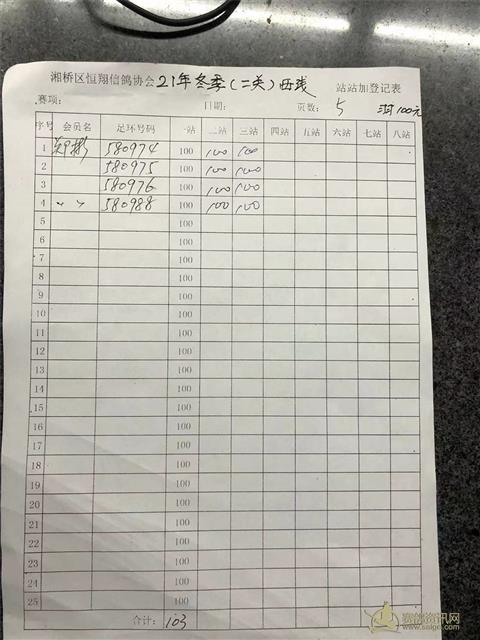 湘桥区恒翔信鸽协会21年冬季(二关)西线 站站加登记表
赛项: 日期: 页数: 5 100元
序号 会员名 足环号码 一站 二站 三站 四站 五站 六站 七站 八站
1 580974 100 100 100
2 580975 100 100 100
3 580976 100 100 100
4 〃 〃 580988 100 100 100
5 100
6 100
7 100
8 100
9 100
10 100
11 100
12 100
13 100
14 100
15 100
16 100
17 100
18 100
19 100
20 100
21 100
22 100
23 100
24 100
25 100
合计: 103
赛鸽资讯网
www.saige.com